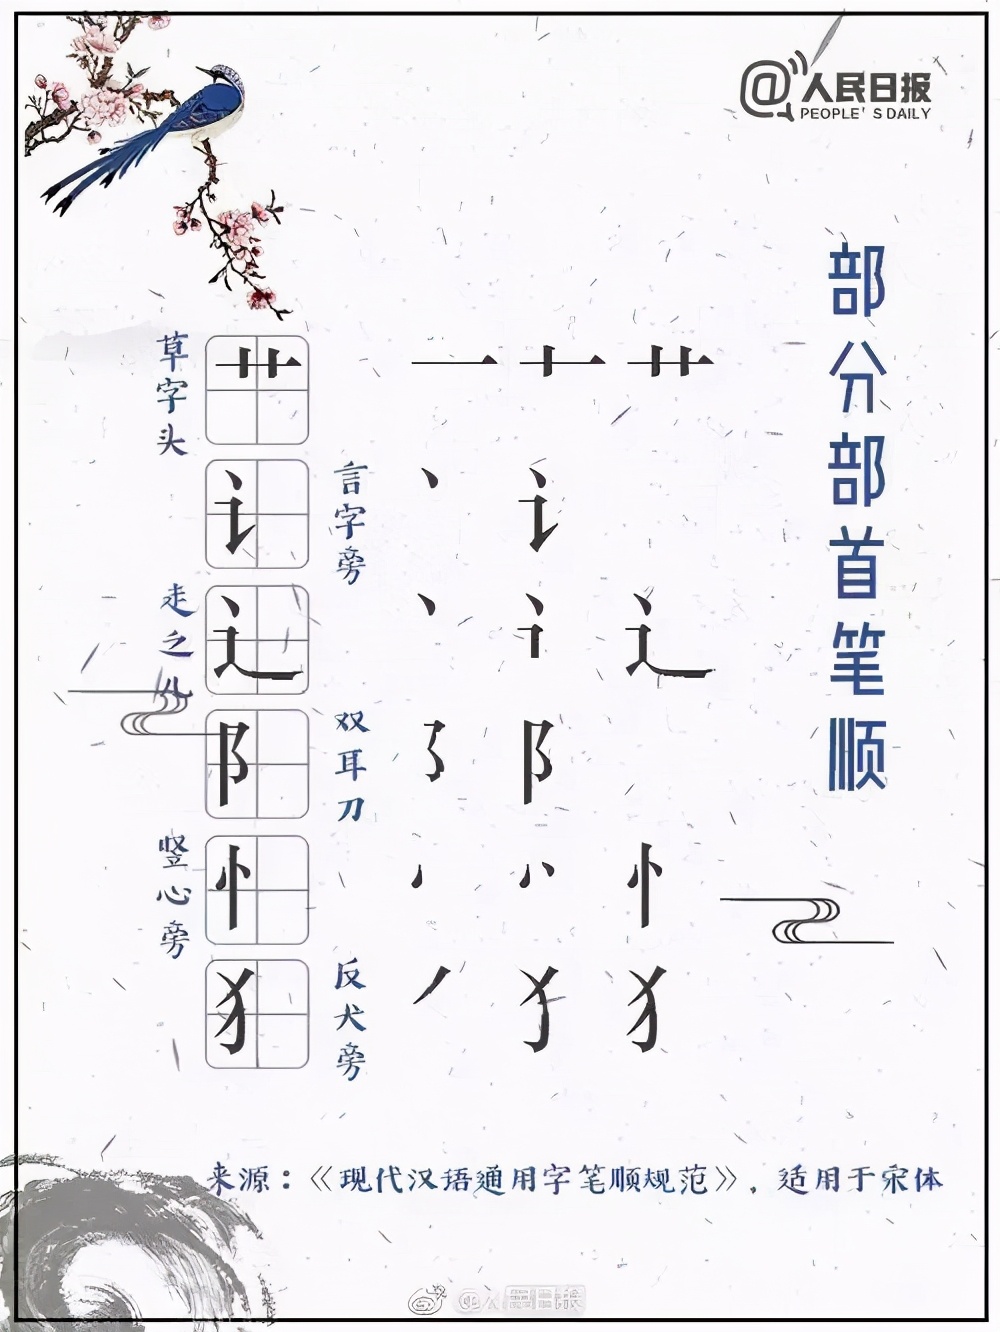 @人民日报
PEOPLE'S DAILY
部分部首笔顺
草字头
艹 一 十 艹
讠 言字旁 丶 讠
走之儿
辶 丶 辶
阝 双耳刀 阝
竖心旁
忄 忄
犭 反犬旁 丿 犭
来源：《现代汉语通用字笔顺规范》，适用于宋体
@人民日报